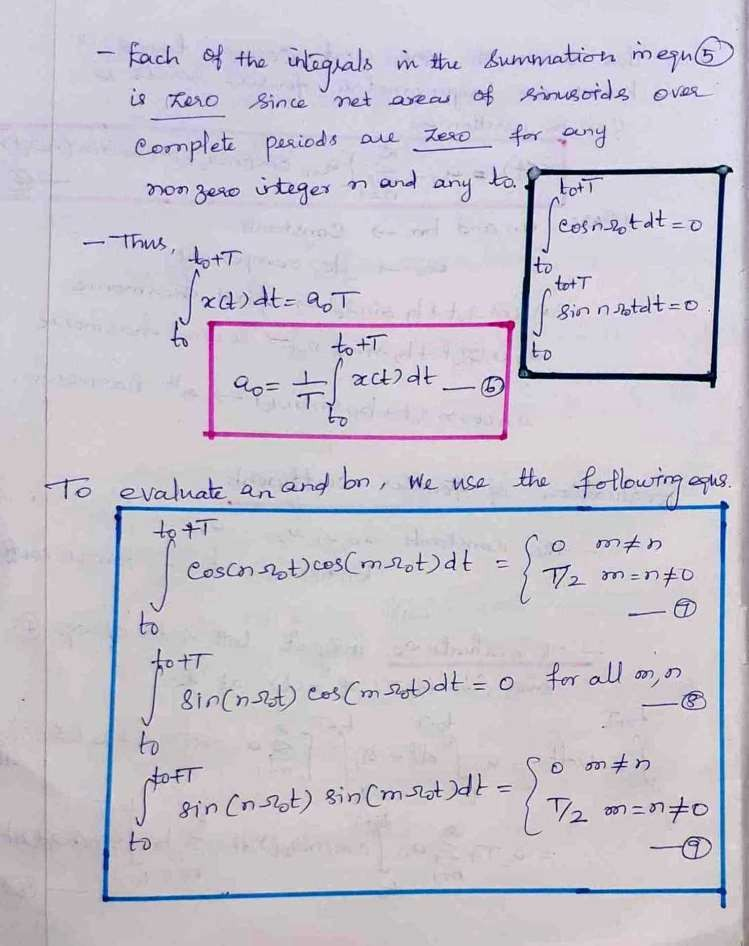 - Each of the integrals in the summation in equn ⑤
is zero since net areas of sinusoids over
complete periods are zero for any
non zero integer n and any to.
∫_{to}^{to+T} cos nΩ₀t dt = 0
∫_{to}^{to+T} sin nΩ₀t dt = 0
- Thus,
∫_{to}^{to+T} x(t) dt = a₀T
a₀ = 1/T ∫_{to}^{to+T} x(t) dt — ⑥
To evaluate an and bn, we use the following equs.
∫_{to}^{to+T} cos(nΩ₀t) cos(mΩ₀t) dt = { 0 m≠n
T/2 m=n≠0
— ⑦
∫_{to}^{to+T} sin(nΩ₀t) cos(mΩ₀t) dt = 0 for all m, n
— ⑧
∫_{to}^{to+T} sin(nΩ₀t) sin(mΩ₀t) dt = { 0 m≠n
T/2 m=n≠0
— ⑨